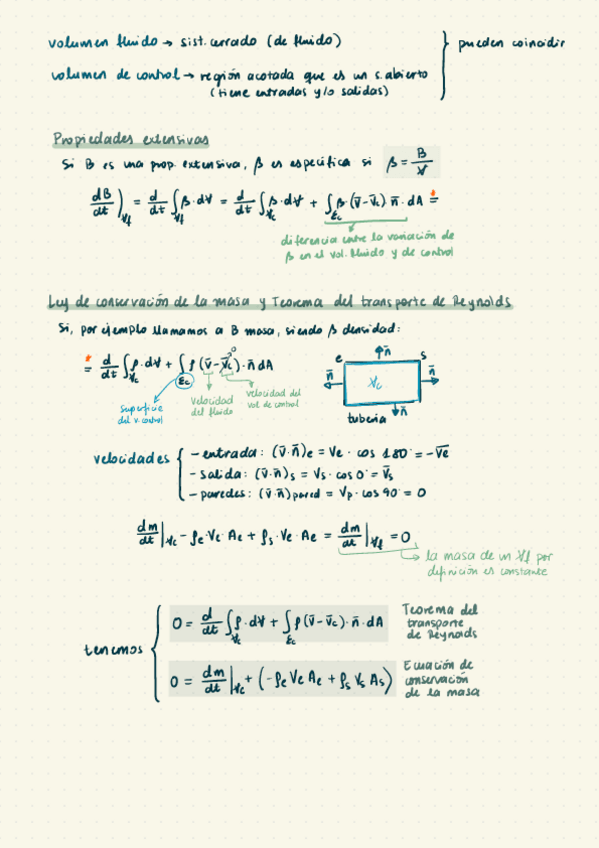 volumen fluido → sist. cerrado (de fluido)
pueden coincidir
volumen de control → región acotada que es un s. abierto
(tiene entradas y/o salidas)
Propiedades extensivas
Si B es una prop. extensiva, β es específica si β = B/V
dB/dt)_Vf = d/dt ∫_Vf β·dV = d/dt ∫_Vc β·dV + ∫_Σc β·(v̄-v̄c) n̄·dA *=
diferencia entre la variación de
β en el vol. fluido y de control
Ley de conservación de la masa y Teorema del transporte de Reynolds
Si, por ejemplo llamamos a B masa, siendo β densidad:
*= d/dt ∫_Vc ρ·dV + ∫_Σc ρ(v̄-v̄c)^0·n̄ dA
e n̄ s
n̄ Vc n̄
n̄
tubería
superficie
del v. control
velocidad
del fluido
velocidad del
vol de control
velocidades
- entrada: (v̄·n̄)e = Ve · cos 180° = -V̄e
- salida: (v̄·n̄)s = Vs · cos 0° = V̄s
- paredes: (v̄·n̄)pared = Vp · cos 90° = 0
dm/dt|_Vc - ρe·Ve·Ae + ρs·Ve·Ae = dm/dt|_Vf = 0
la masa de un Vf por
definición es constante
tenemos
0 = d/dt ∫_Vc ρ·dV + ∫_Σc ρ(v̄-v̄c)·n̄·dA
Teorema del
transporte
de Reynolds
0 = dm/dt|_Vc + (-ρe Ve Ae + ρs Vs As)
Ecuación de
conservación
de la masa